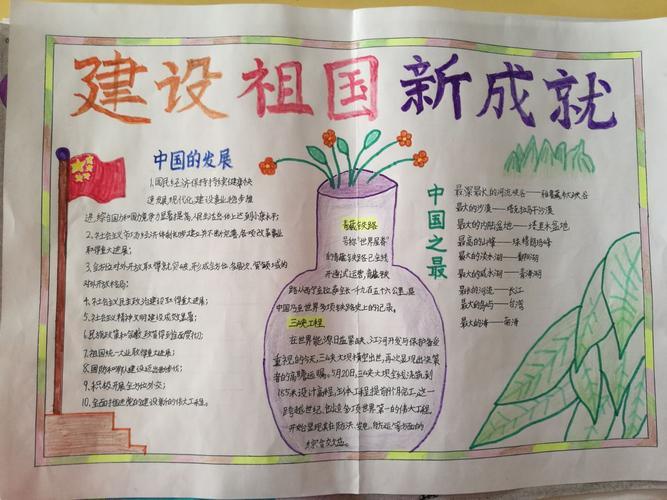 建设祖国新成就
中国的发展
1、国民经济保持持续健康快
速发展,现代化建设事业稳步推
进,综合国力和国力竞争力显著提高,人民生活总体上达到小康水平;
2、社会主义市场经济体制初步建立并不断完善,各项改革事业
取得重大进展;
3、全方位对外开放取得新突破,形成全方位、多层次、宽领域的
对外开放格局;
4、社会主义民主政治建设取得重大进展;
5、社会主义精神文明建设成效显著;
6、民族政策和宗教政策得到全面贯彻;
7、祖国统一大业取得重大进展;
8、国防和军队建设迈出新步伐;
9、积极开展全方位外交;
10、全面推进党的建设新的伟大工程。
青藏铁路
号称“世界屋脊”
的青藏铁路已全线
开通试运营,青藏铁
路从西宁至拉萨全长一千九百五十六公里,是
中国乃至世界多项铁路史上的记录。
三峡工程
在世界能源日益紧缺,江河开发与保护备受
重视的今天,三峡大坝横空出世,再次显现出决策
者的高瞻远瞩。5月20日,三峡大坝全线浇筑到
185米设计高程,主体工程提前9个月完工,这一
跨越世纪、创造多项世界第一的伟大工程,
开始显现其在防洪、发电、航运等方面的
综合效益。
中国之最
最深最长的河流峡谷——雅鲁藏布大峡谷
最大的沙漠——塔克拉玛干沙漠
最大的内陆盆地——塔里木盆地
最高的山峰——珠穆朗玛峰
最大的淡水湖——鄱阳湖
最大的咸水湖——青海湖
最长的河流——长江
最大的岛屿——台湾
最大的海——南海